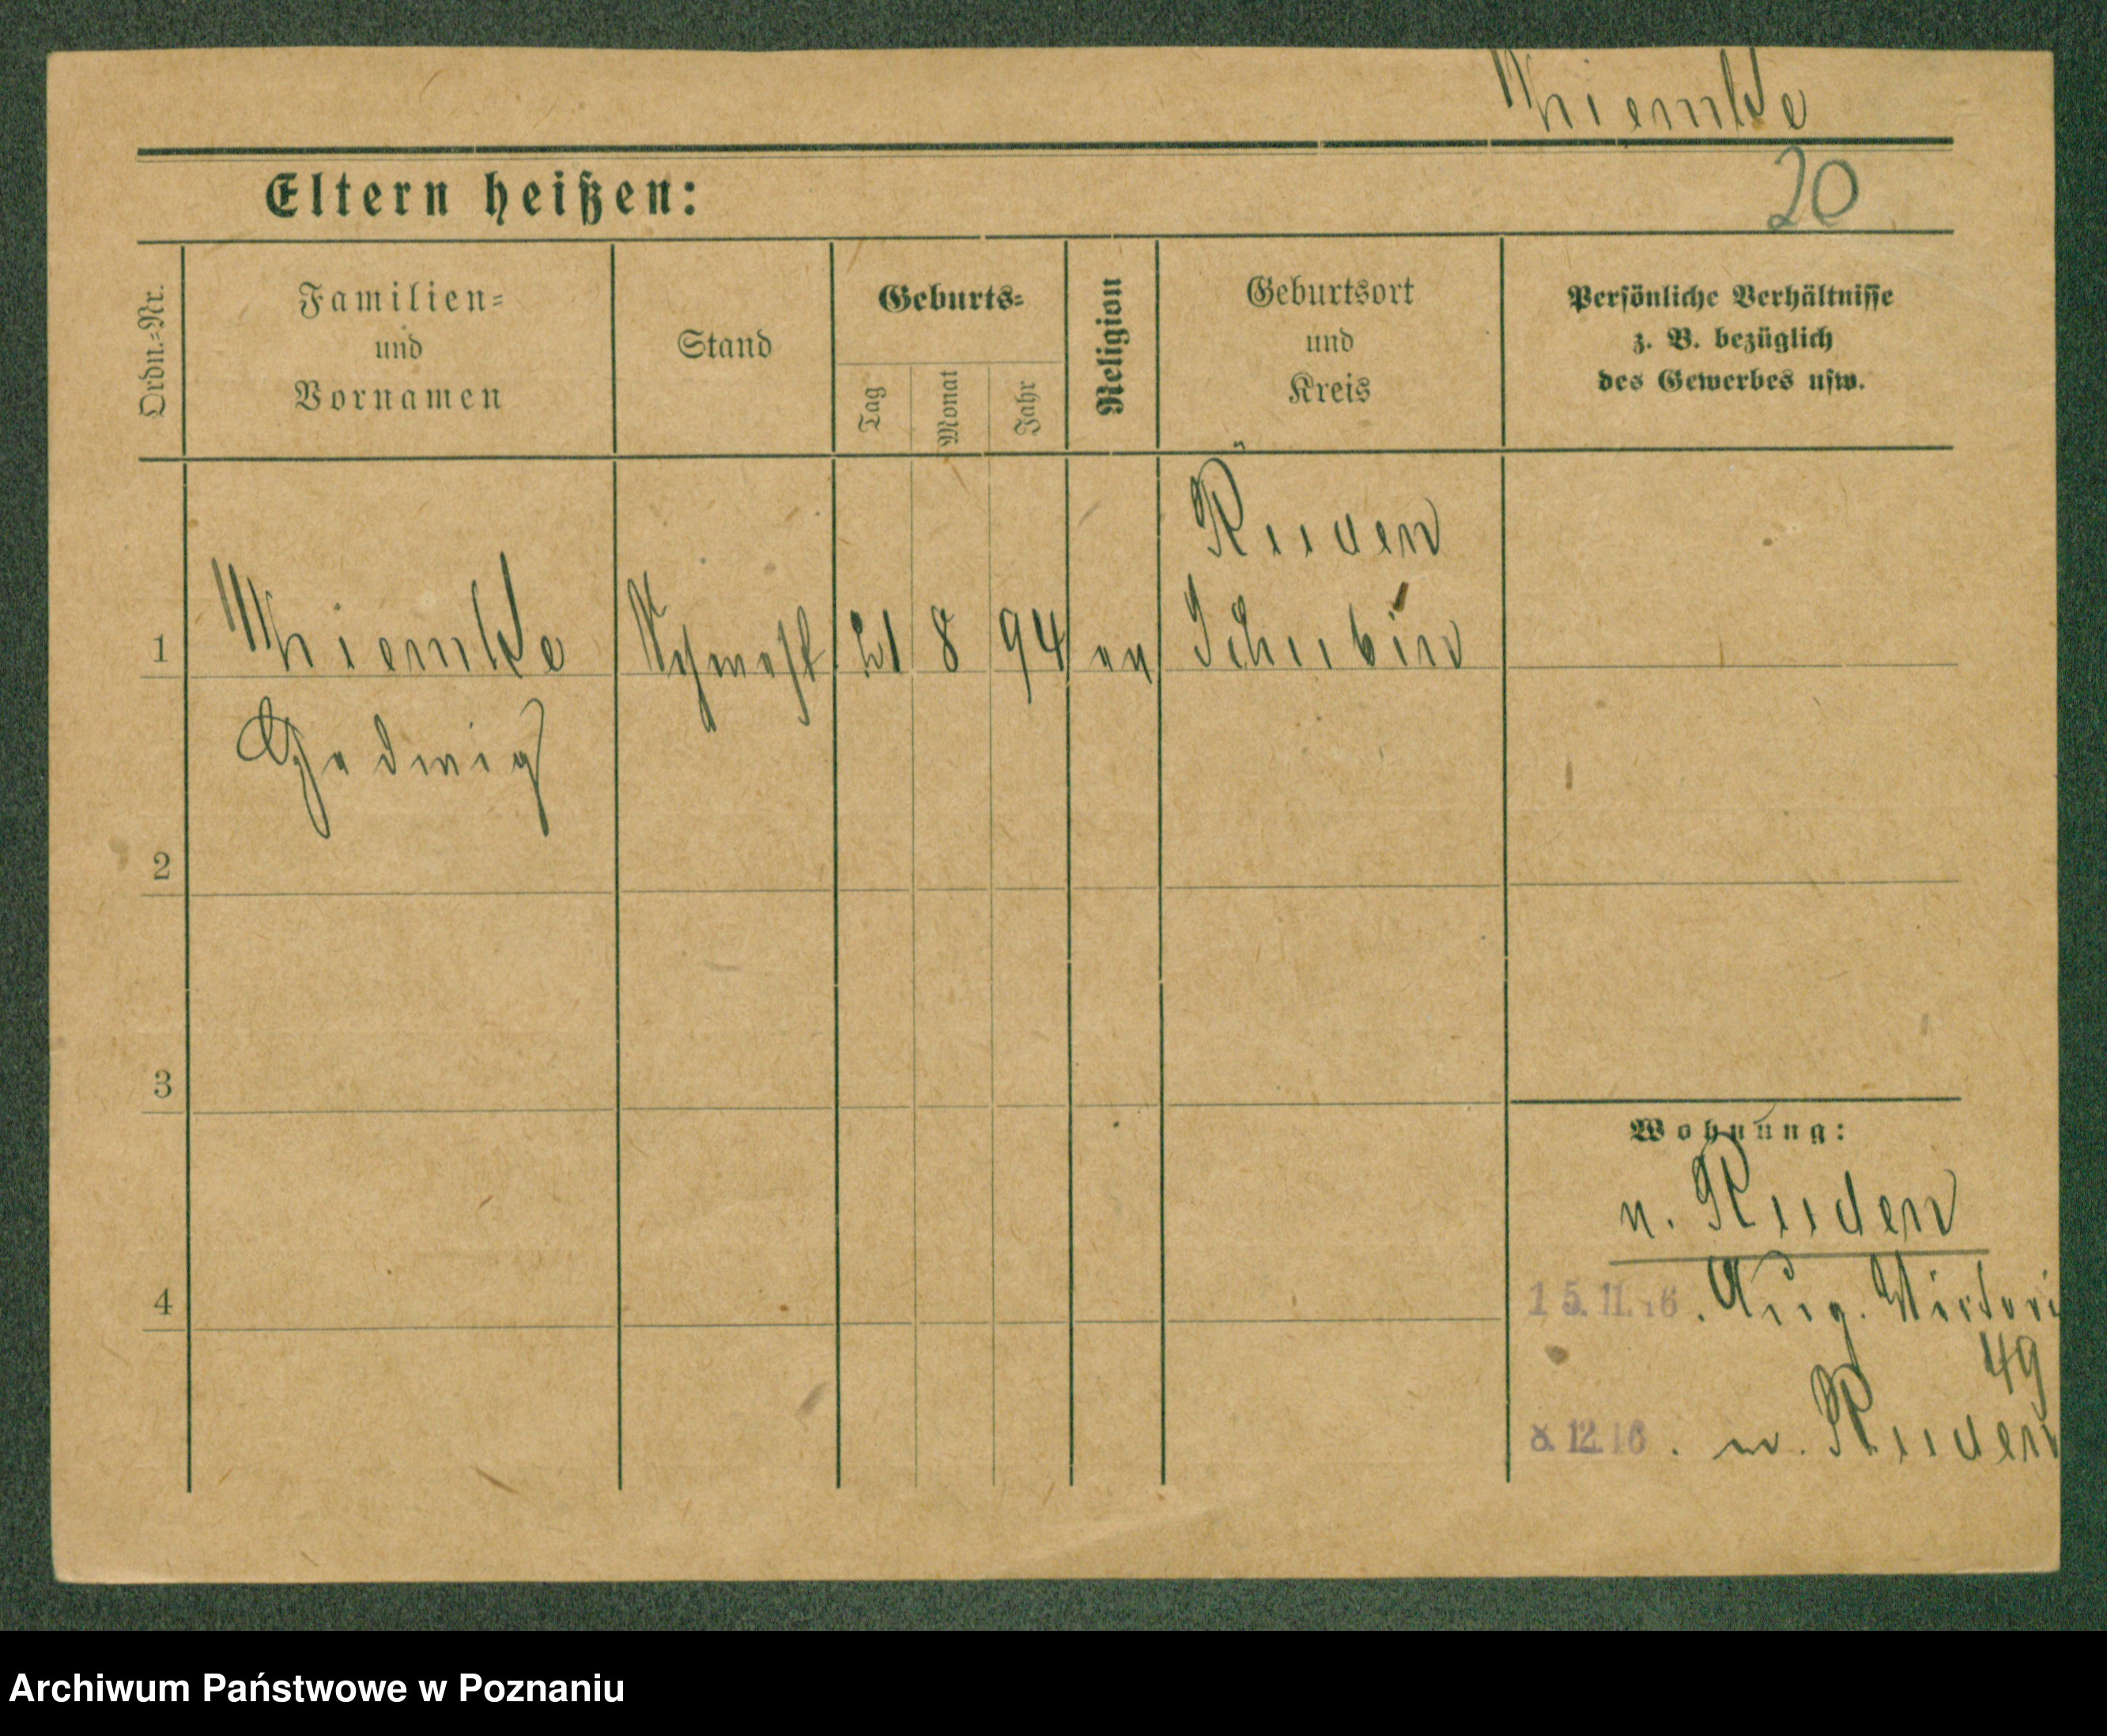 Thiemke
Eltern heißen:
20
Ordn.-Nr.
Familien-
und
Vornamen
Stand
Geburts-
Tag
Monat
Jahr
Religion
Geburtsort
und
Kreis
Persönliche Verhältnisse
z. B. bezüglich
des Gewerbes usw.
1
Thiemke
Hedwig
21
8
94
ev
Schubin
2
3
4
Wohnung:
15.11.16. Aug. Victori
49
8.12.16.
Archiwum Państwowe w Poznaniu